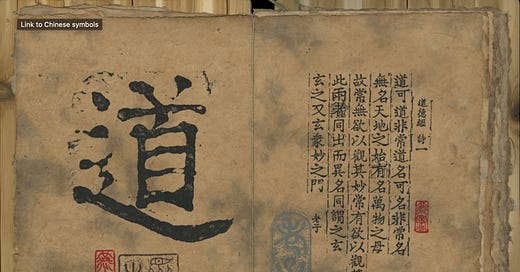 Link to Chinese symbols
道
道德經 詩一
道可道非常道名可名非常名
無名天地之始有名萬物之母
故常無欲以觀其妙常有欲以觀其
此兩者同出而異名同謂之玄
玄之又玄衆妙之門
老子